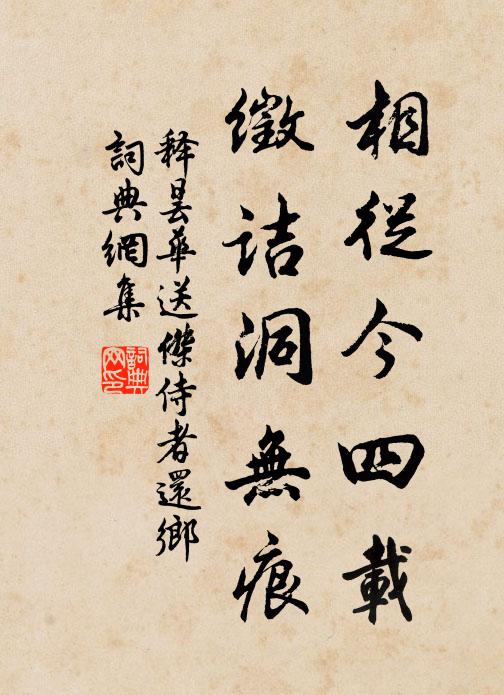 相從今四載
徵詰洞無痕
释昙華送傑侍者還鄉
詞典網集
詞典网印